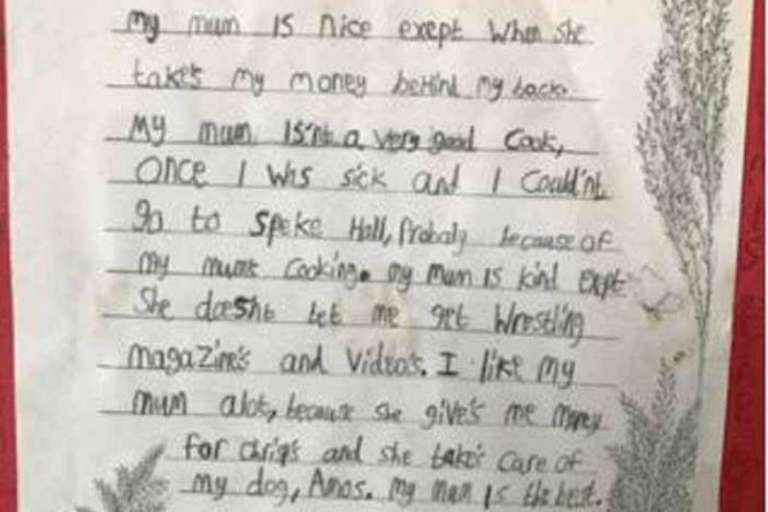 my mum is nice exept when she
take's my money behind my back.
My mum is'nt a very good cook,
Once I was sick and I could'nt
go to Speke Hall, Probaly because of
my mums cooking. my mum is kind exept
She doesnt let me get Wrestling
magazine's and Video's. I like my
mum alot, because she give's me money
for chrip's and she take's care of
my dog, Amos. my mum is the best.